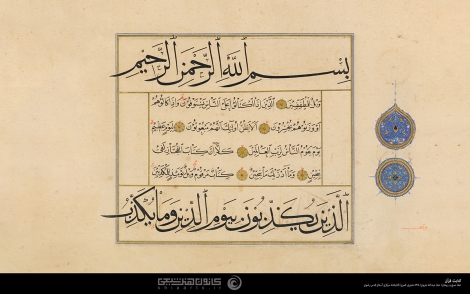 بِسْمِ اللَّهِ الرَّحْمَنِ الرَّحِيمِ
وَيْلٌ لِلْمُطَفِّفِينَ الَّذِينَ إِذَا اكْتَالُوا عَلَى النَّاسِ يَسْتَوْفُونَ وَإِذَا كَالُوهُمْ
أَوْ وَزَنُوهُمْ يُخْسِرُونَ أَلَا يَظُنُّ أُولَئِكَ أَنَّهُمْ مَبْعُوثُونَ لِيَوْمٍ عَظِيمٍ
يَوْمَ يَقُومُ النَّاسُ لِرَبِّ الْعَالَمِينَ كَلَّا إِنَّ كِتَابَ الْفُجَّارِ لَفِي
سِجِّينٍ وَمَا أَدْرَاكَ مَا سِجِّينٌ كِتَابٌ مَرْقُومٌ وَيْلٌ يَوْمَئِذٍ لِلْمُكَذِّبِينَ
الَّذِينَ يُكَذِّبُونَ بِيَوْمِ الدِّينِ وَمَا يُكَذِّبُ
کتابت قرآن